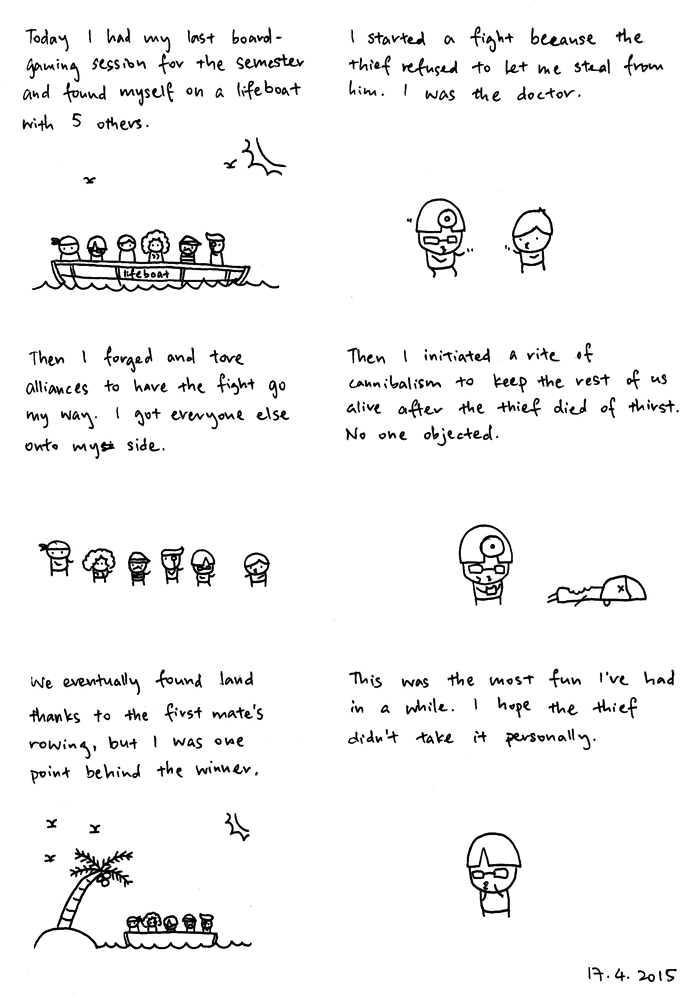 Today I had my last board-
gaming session for the semester
and found myself on a lifeboat
with 5 others.
lifeboat
I started a fight because the
thief refused to let me steal from
him. I was the doctor.
Then I forged and tore
alliances to have the fight go
my way. I got everyone else
onto my side.
Then I initiated a rite of
cannibalism to keep the rest of us
alive after the thief died of thirst.
No one objected.
We eventually found land
thanks to the first mate's
rowing, but I was one
point behind the winner.
This was the most fun I've had
in a while. I hope the thief
didn't take it personally.
17.4.2015